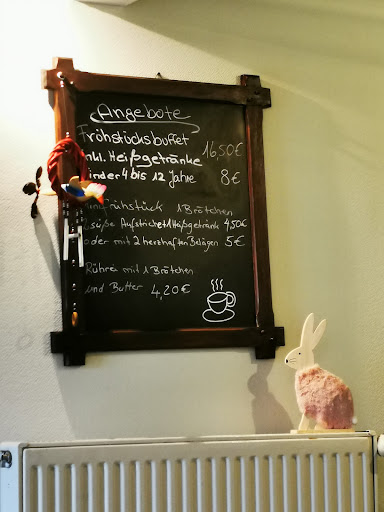 Angebote
Frühstücksbuffet
inkl. Heißgetränke 16,50€
Kinder 4 bis 12 Jahre 8€
frühstück 1 Brötchen
süße Aufstriche + 1 Heißgetränk 4,50€
oder mit 2 herzhaften Belägen 5€
Rührei mit 1 Brötchen
und Butter 4,20€